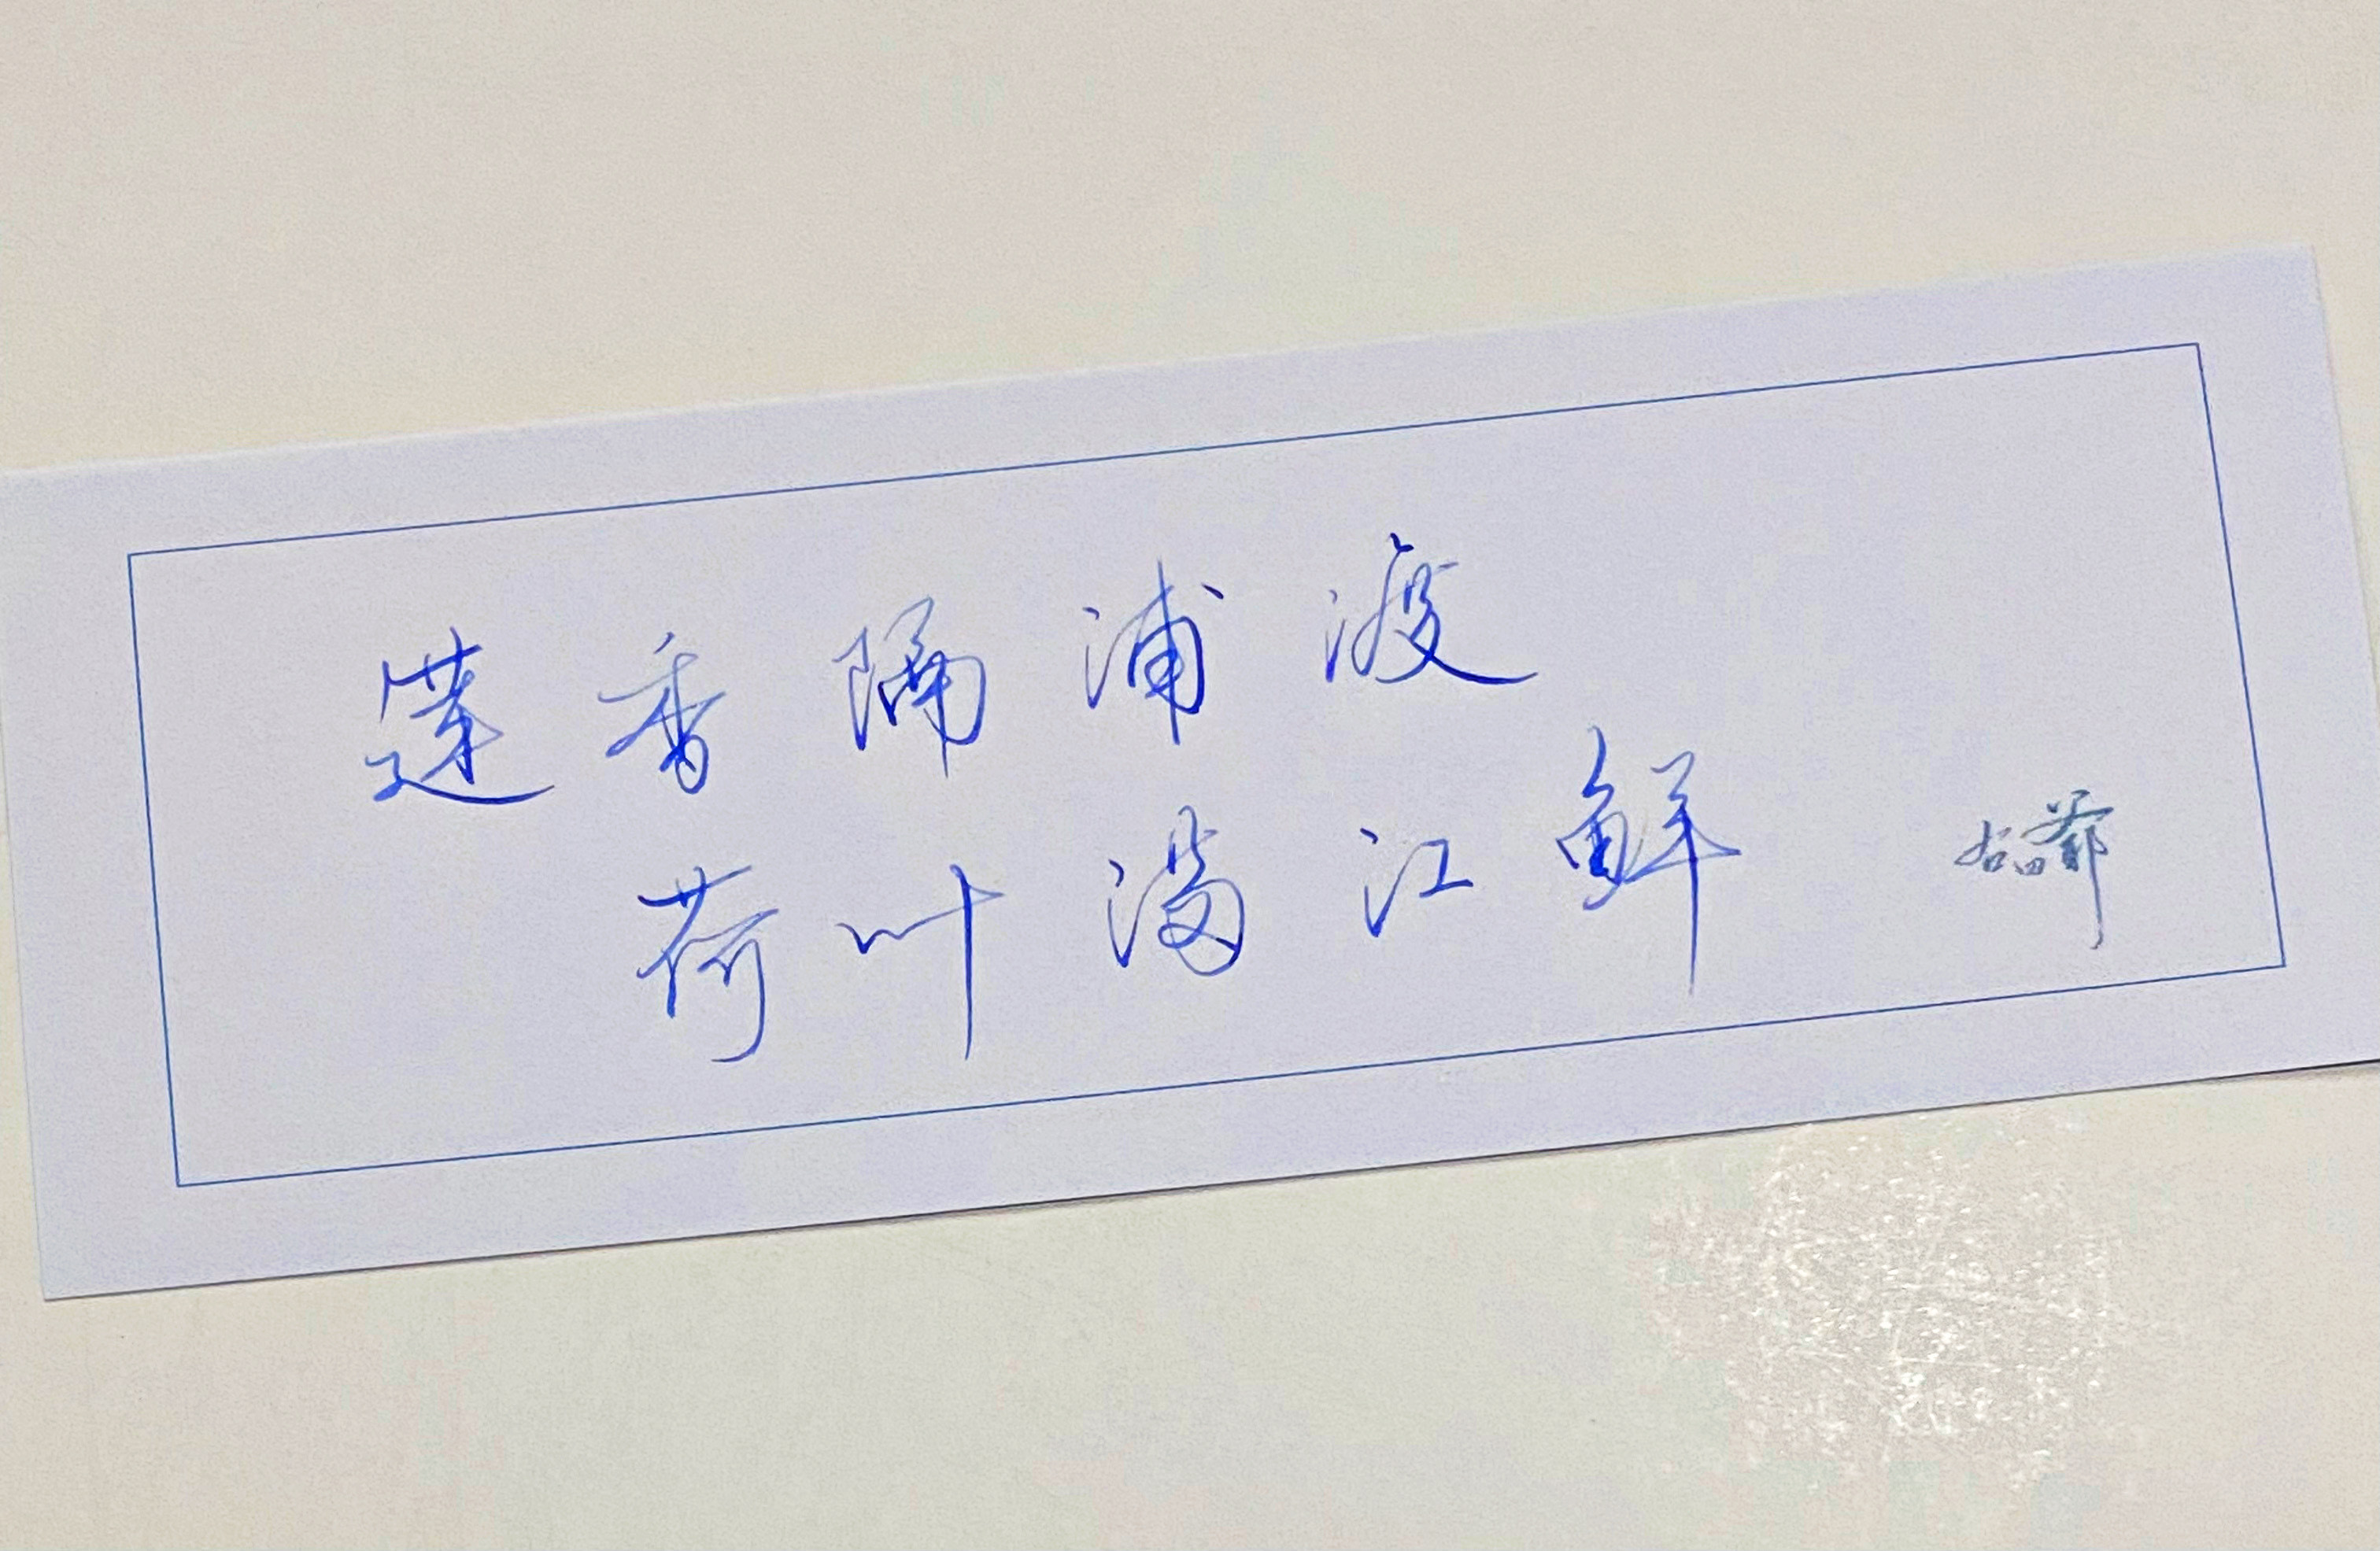 莲香隔浦渡
荷叶满江鲜